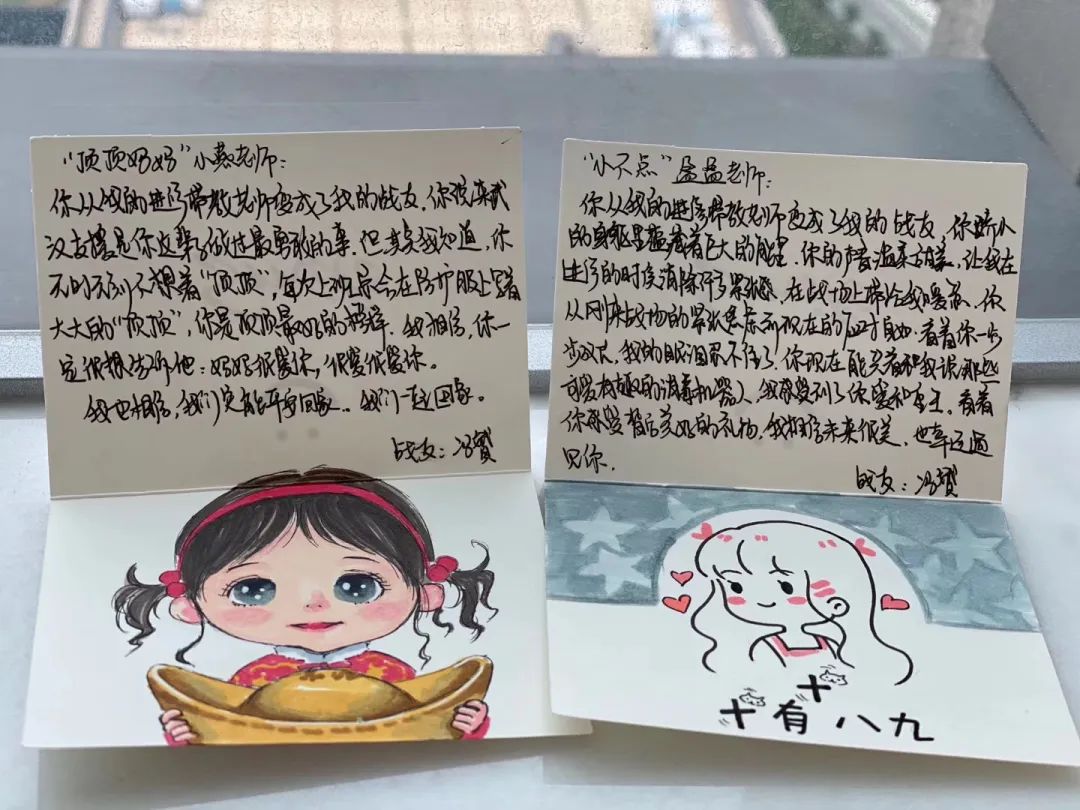 “顶顶妈妈”小燕老师：
你从我的进修带教老师变成了我的战友，你说来武
汉支援是你这辈子做过最勇敢的事。但其实我知道，你
无时无刻不想着“顶顶”，每次上班总会在防护服上写着
大大的“顶顶”，你是顶顶最好的榜样。我相信，你一
定很想告诉他：妈妈很爱你，很爱很爱你。
我也相信，我们定能平安回家。我们一起回家。
战友：冯贤
“小不点”老师：
你从我的进修带教老师变成了我的战友，你娇小
的身躯里蕴藏着巨大的能量。你的声音温柔甜美，让我在
进修的时候消除了紧张感，在战场上带给我温暖。你
从刚来战场的紧张焦虑到现在的应对自如，看着你一步
步改变，我的眼泪忍不住了。你现在能笑着和我说那些
可爱的消毒机器人，我感受到了你爱和。看着
你感受背后美好的礼物，我相信未来很美，也幸运遇
见你。
战友：冯贤
十
十有八九